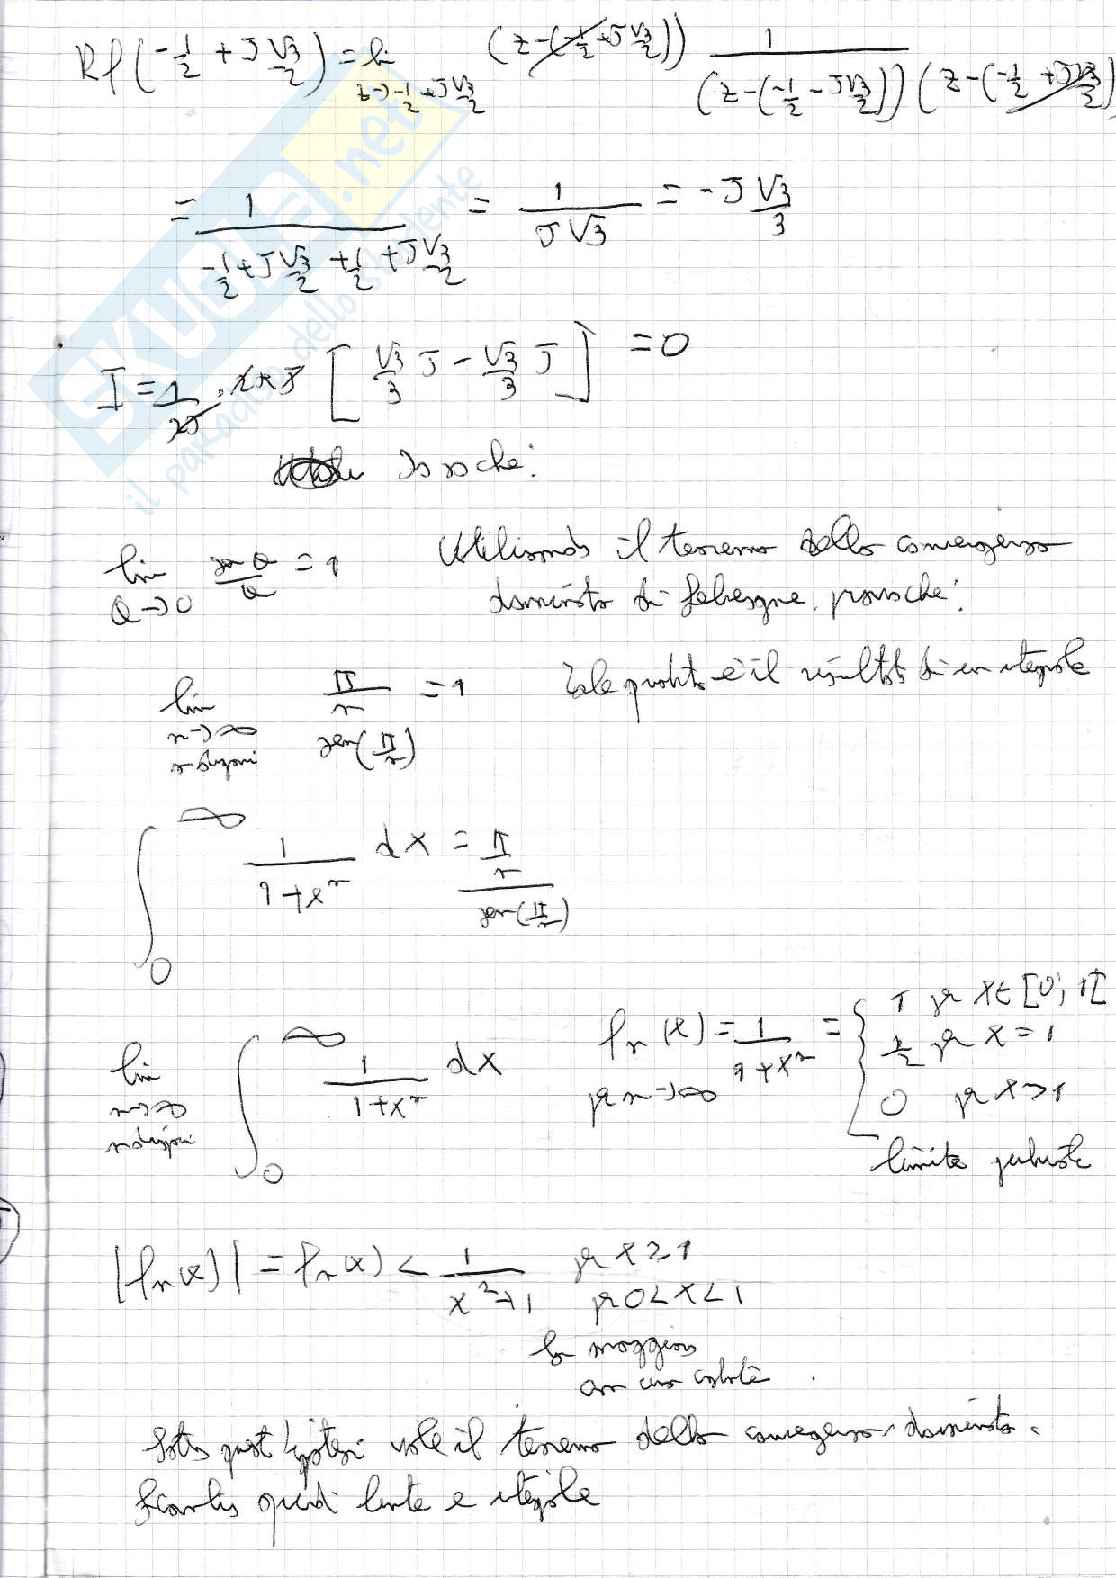 Rf(-1/2 + J √3/2) = lim z→-1/2+J√3/2 (z-(-1/2+J√3/2)) 1/((z-(-1/2-J√3/2))(z-(-1/2+J√3/2)))
= 1/(-1/2+J√3/2+1/2+J√3/2) = 1/(J√3) = -J √3/3
I = 1/2J · [√3/3 J - √3/3 J] = 0
Io so che:
lim θ→0 sen θ/θ = 1 Utilizzando il teorema della convergenza
dominata di Lebesgue, provo che:
lim n→∞ (π/n)/sen(π/n) = 1 Tale quantità è il risultato di un integrale
∫ 0 ∞ 1/(1+x^n) dx = (π/n)/sen(π/n)
lim n→∞ ∫ 0 ∞ 1/(1+x^n) dx fn(x) = 1/(1+x^n) = { 1 per x∈[0;1[
per n→∞ 1/2 per x=1
0 per x>1
limite puntuale
|fn(x)| = fn(x) < 1/(x²+1) per x≥1
per 0<x<1
la maggioro
con una costante
Sotto quest'ipotesi vale il teorema della convergenza dominata.
Scambio quindi limite e integrale
EKUOLE.net
il paradiso dello studente